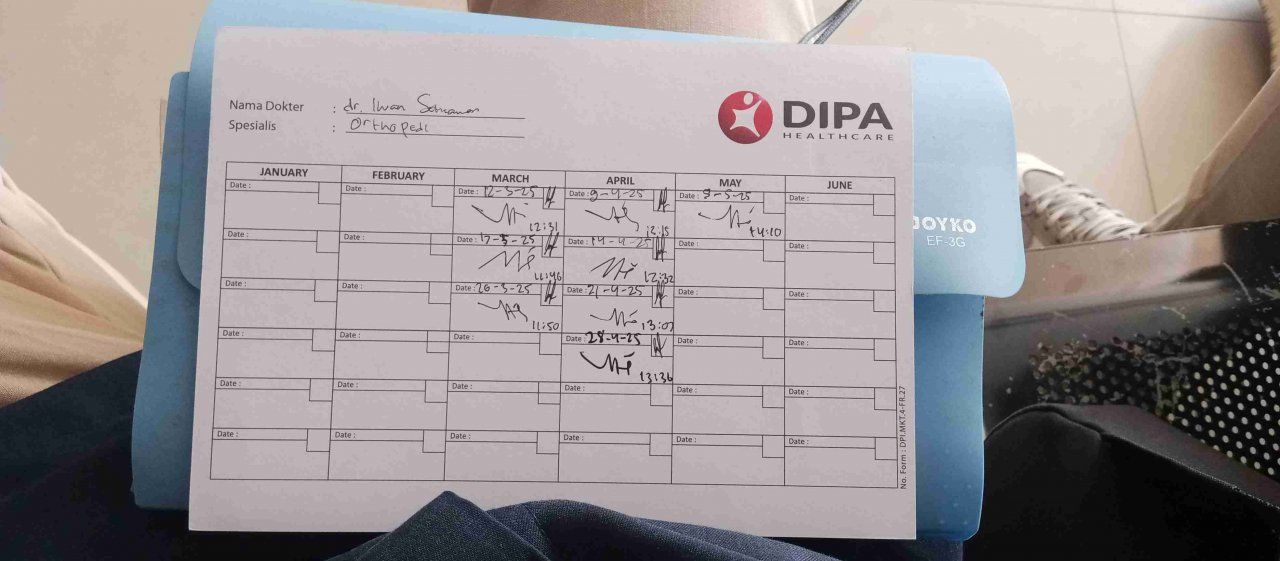 Nama Dokter : dr. Iwan Setiawan
Spesialis : Orthopedi
DIPA
HEALTHCARE
JANUARY FEBRUARY MARCH APRIL MAY JUNE
Date : Date : Date : 12-3-25 Date : 9-4-25 Date : 8-5-25 Date :
12:31 12:15 14:10
Date : Date : Date : 17-3-25 Date : 14-4-25 Date : Date :
11:46 12:32
Date : Date : Date : 26-3-25 Date : 21-4-25 Date : Date :
11:50 13:07
Date : Date : Date : Date : 28-4-25 Date : Date :
13:36
Date : Date : Date : Date : Date : Date :
Date : Date : Date : Date : Date : Date :
No. Form : DPI.MKT.4-FR.27
JOYKO
EF-3G